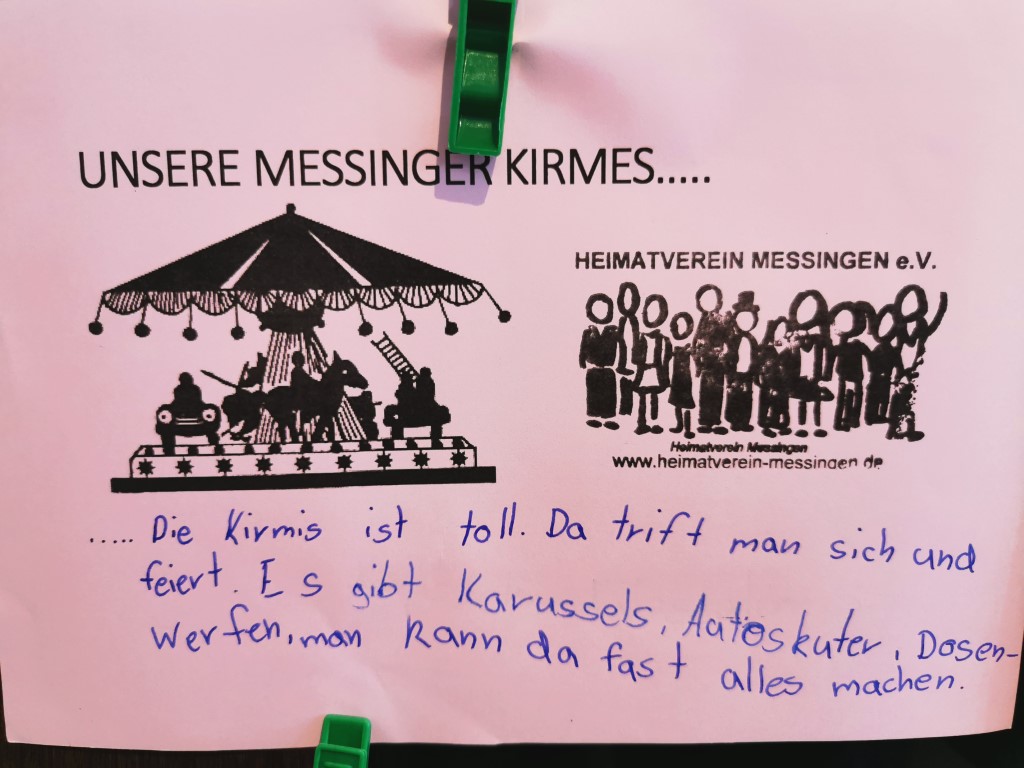 UNSERE MESSINGER KIRMES.....
HEIMATVEREIN MESSINGEN e.V.
Heimatverein Messingen
www.heimatverein-messingen.de
..... Die Kirmis ist toll. Da trift man sich und
feiert. Es gibt Karussels, Autoskuter, Dosen-
werfen, man kann da fast alles machen.